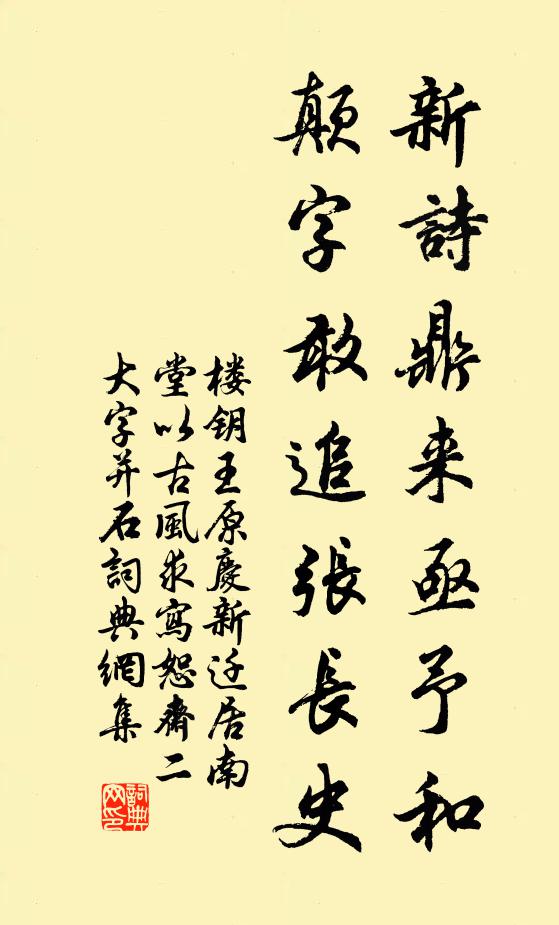 新詩鼎来亟予和
顛字敢追張長史
楼钥王原慶新迁居南
堂以古風求寫恕齋二
大字并石詞典網集
詞典網印